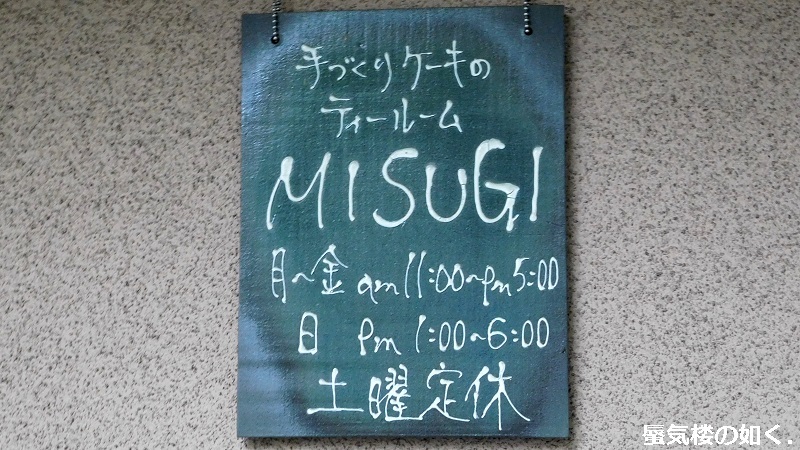 手づくりケーキの
ティールーム
MISUGI
月～金 am11:00～pm5:00
日 Pm 1:00～6:00
土曜定休
蜃気楼の如く.